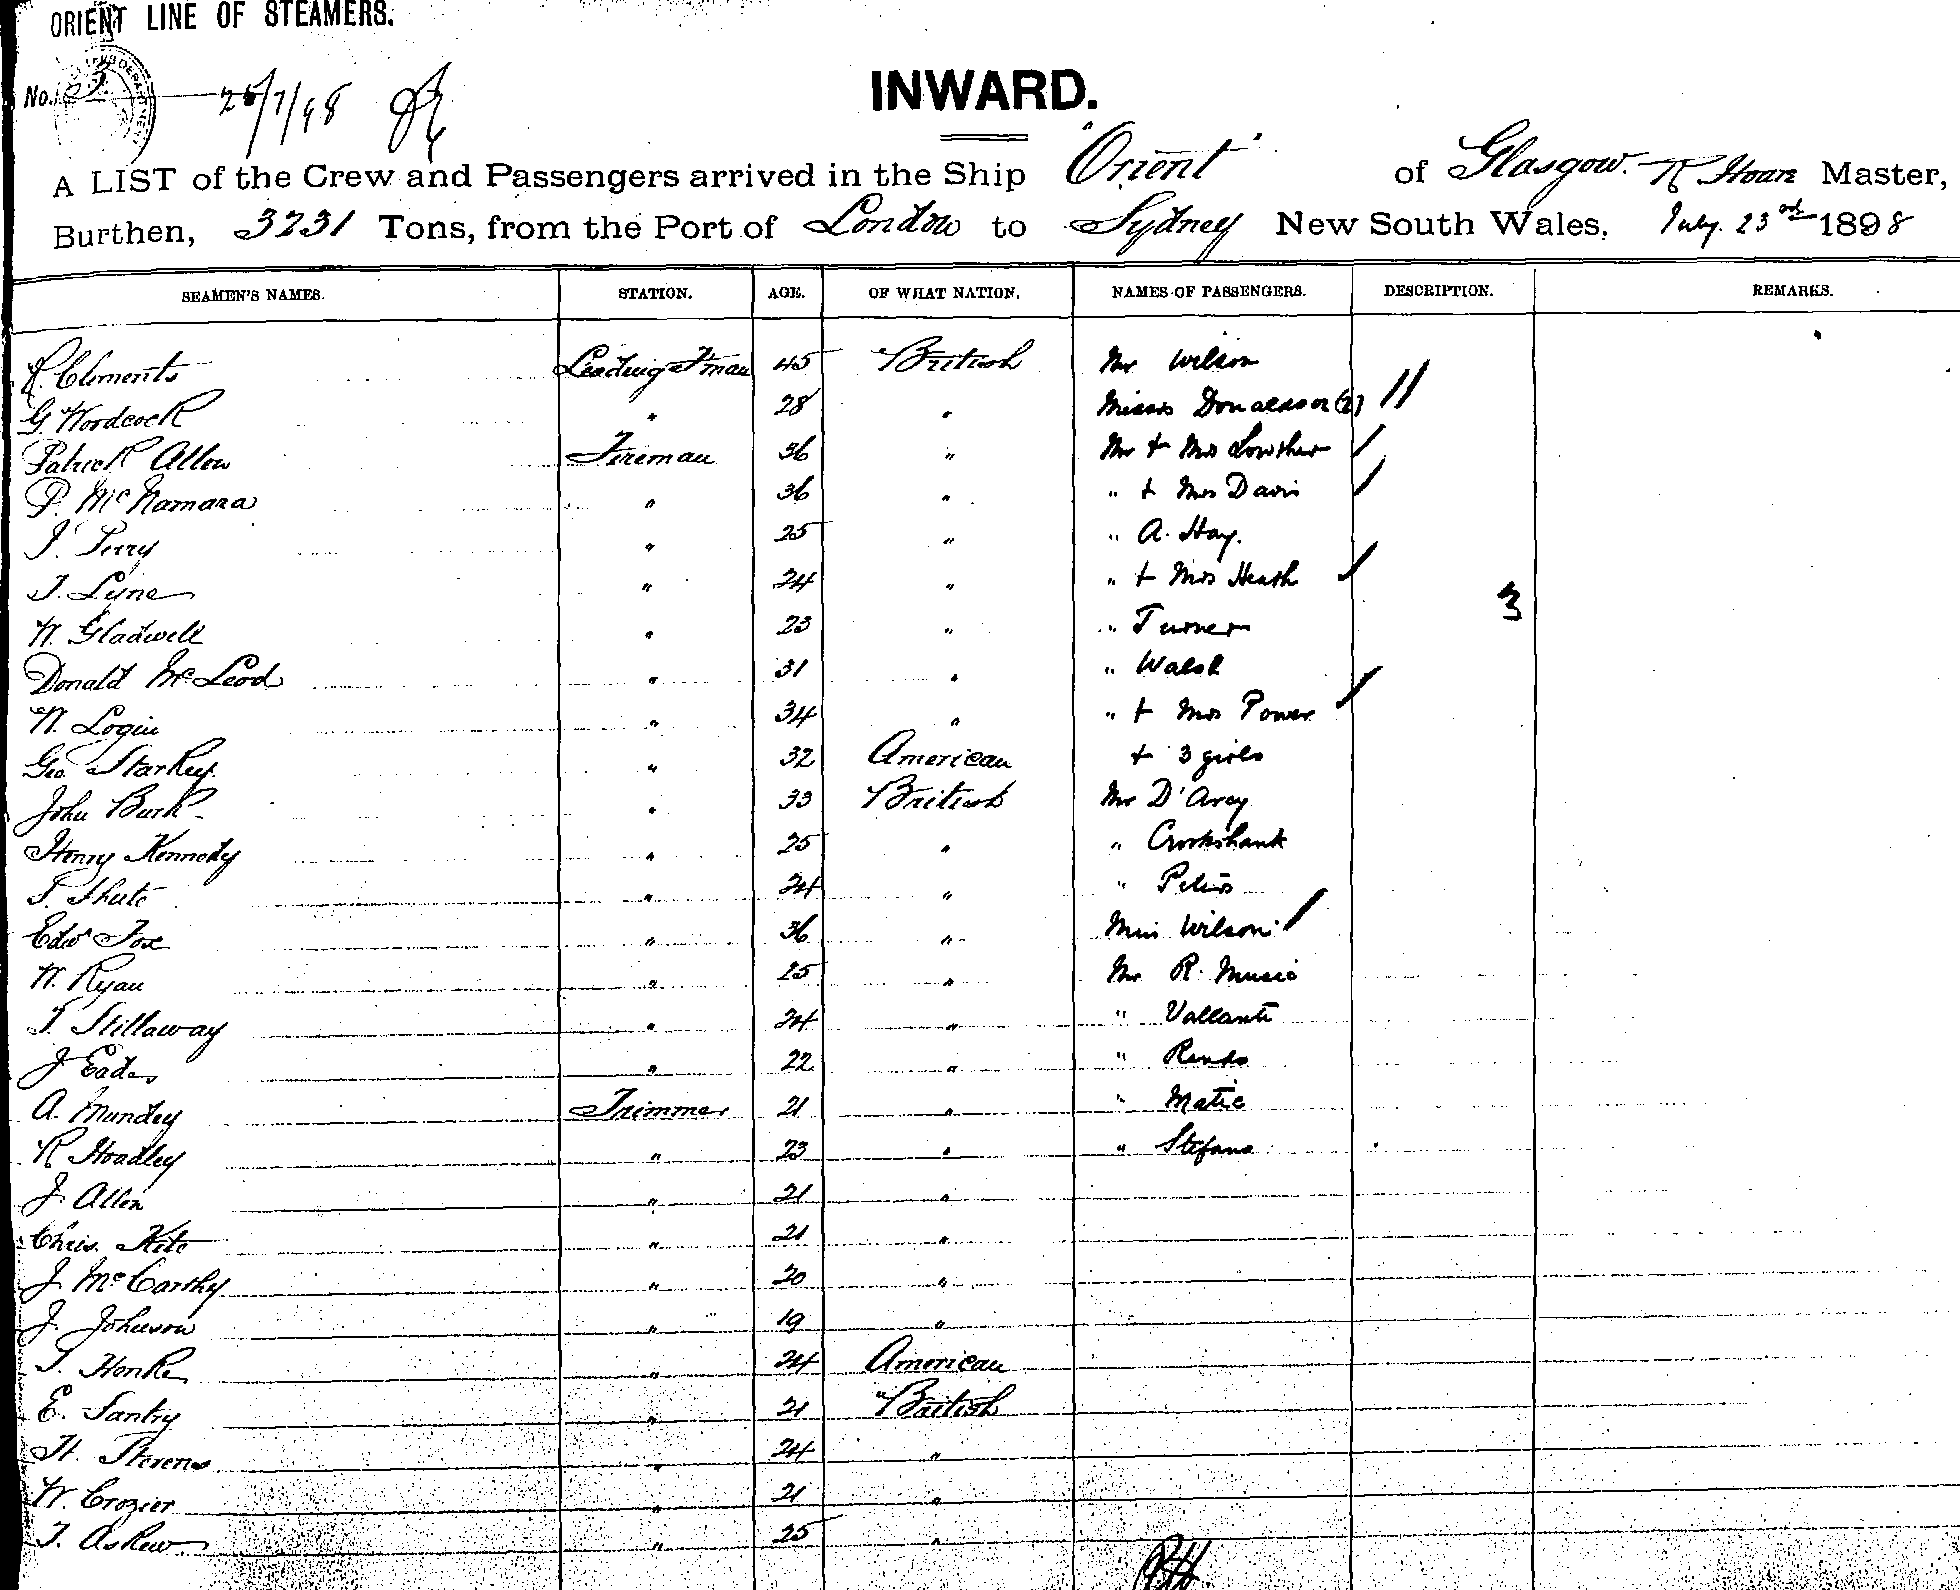 ORIENT LINE OF STEAMERS.
No. 3 25/7/98
INWARD.
A LIST of the Crew and Passengers arrived in the Ship "Orient" of Glasgow. R Hoare Master,
Burthen, 3231 Tons, from the Port of London to Sydney New South Wales, July 23rd 1898
SEAMEN'S NAMES. STATION. AGE. OF WHAT NATION. NAMES OF PASSENGERS. DESCRIPTION. REMARKS.
R. Clements Leading Fman 45 British Mr Wilson
G. Woodcock " 28 " Misses Donaldson (2) //
Patrick Allen Fireman 36 " Mr + Mrs Lowther /
P. McNamara " 36 " " + Mrs Davis /
J. Perry " 25 " " A. Hay.
J. Lyne " 24 " " + Mrs Heath /
W. Gladwell " 23 " " Turner 3
Donald McLeod " 31 " " Walsh
W. Login " 34 " " + Mrs Power /
Geo. Starkey " 32 American + 3 girls
John Burk " 33 British Mr D'Arcy
Henry Kennedy " 25 " " Crookshank
T. Shute " 24 " " Peters
Edw Fox " 36 " Miss Wilson /
W. Ryan " 25 " Mr R. Music
T. Stillaway " 24 " " Vallanti
J Eades " 22 " "
A. Mundey Trimmer 21 " " Matic
R Hoadley " 23 " " Stefano
J. Allen " 21 "
Chris. Kite " 21 "
J. McCarthy " 20 "
J. Johnson " 19 "
T. Honke " 24 American
E. Santry " 21 British
H. Stevens " 24 "
W. Crozier " 21 "
T. Askew " 25 "